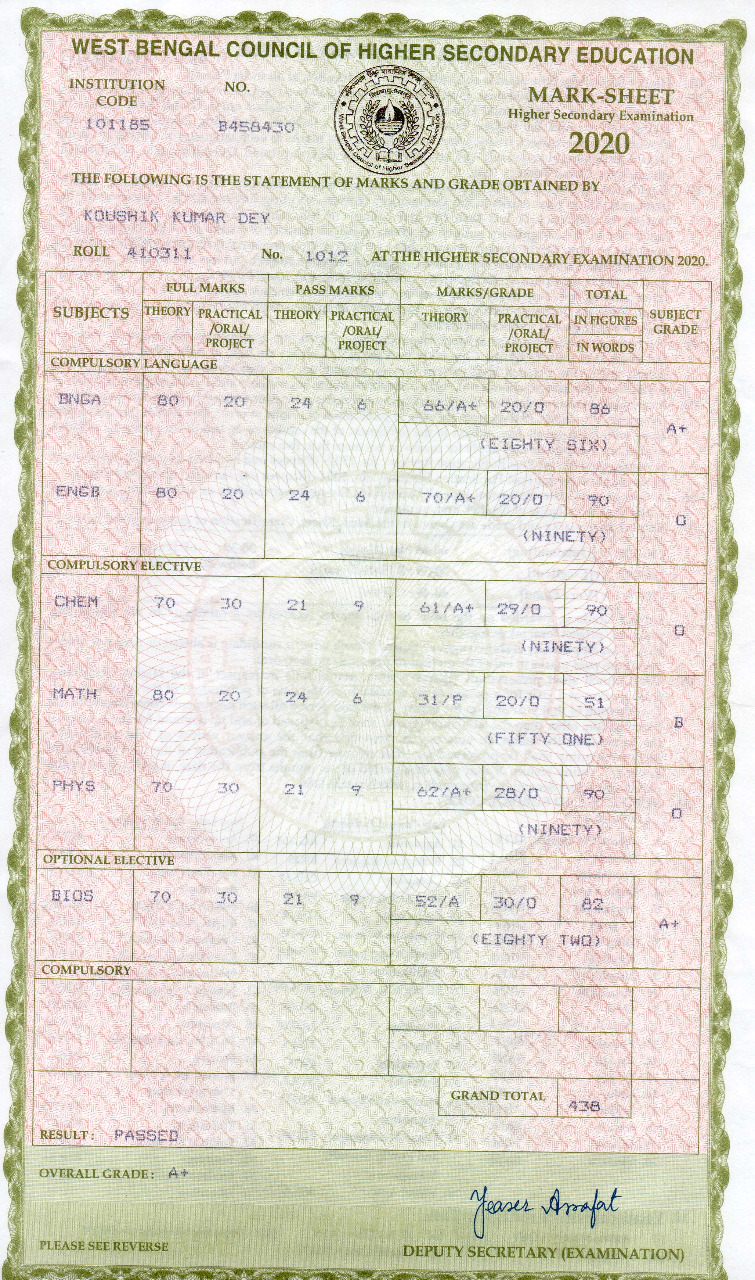 WEST BENGAL COUNCIL OF HIGHER SECONDARY EDUCATION
INSTITUTION CODE
101185
NO.
B458430
MARK-SHEET
Higher Secondary Examination
2020
THE FOLLOWING IS THE STATEMENT OF MARKS AND GRADE OBTAINED BY
KOUSHIK KUMAR DEY
ROLL 410311 No. 1012 AT THE HIGHER SECONDARY EXAMINATION 2020.
SUBJECTS FULL MARKS PASS MARKS MARKS/GRADE TOTAL SUBJECT GRADE
THEORY PRACTICAL /ORAL/ PROJECT THEORY PRACTICAL /ORAL/ PROJECT THEORY PRACTICAL /ORAL/ PROJECT IN FIGURES IN WORDS
COMPULSORY LANGUAGE
BNGA 80 20 24 6 66/A+ 20/O 86 A+
(EIGHTY SIX)
ENGB 80 20 24 6 70/A+ 20/O 90 O
(NINETY)
COMPULSORY ELECTIVE
CHEM 70 30 21 9 61/A+ 29/O 90 O
(NINETY)
MATH 80 20 24 6 31/P 20/O 51 B
(FIFTY ONE)
PHYS 70 30 21 9 62/A+ 28/O 90 O
(NINETY)
OPTIONAL ELECTIVE
BIOS 70 30 21 9 52/A 30/O 82 A+
(EIGHTY TWO)
COMPULSORY
GRAND TOTAL 438
RESULT : PASSED
OVERALL GRADE : A+
Yeaser Arrafat
PLEASE SEE REVERSE
DEPUTY SECRETARY (EXAMINATION)